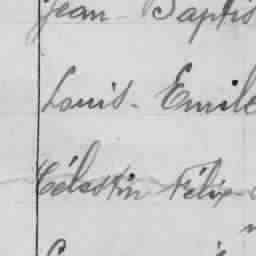 Jean Baptis
Louis - Emile
Célestin Félix